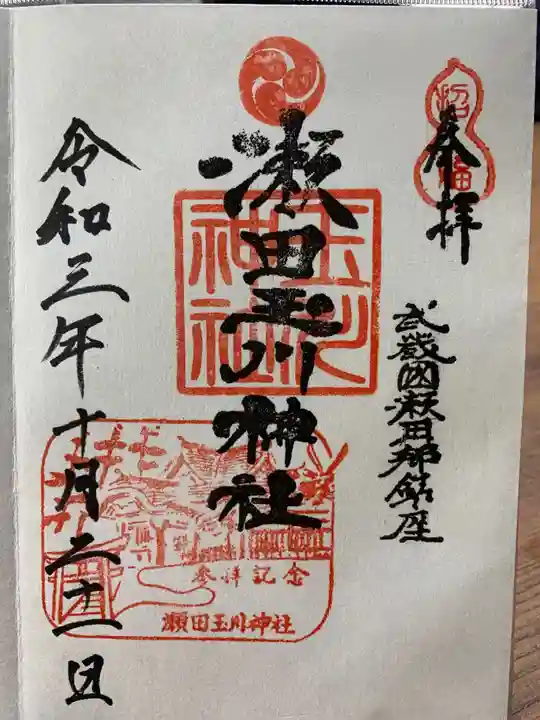 奉拝
招福
武蔵国瀬田郷鎮座
瀬田玉川神社
玉川神社
参拝記念
瀬田玉川神社
令和三年十月二十一日